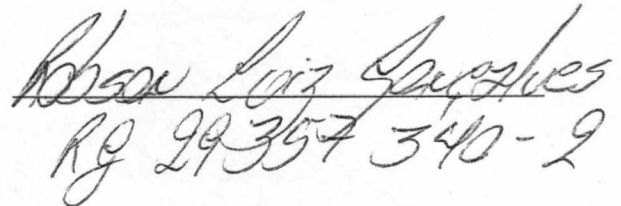 Robson Luiz Gonçalves
RG 29357 340-2